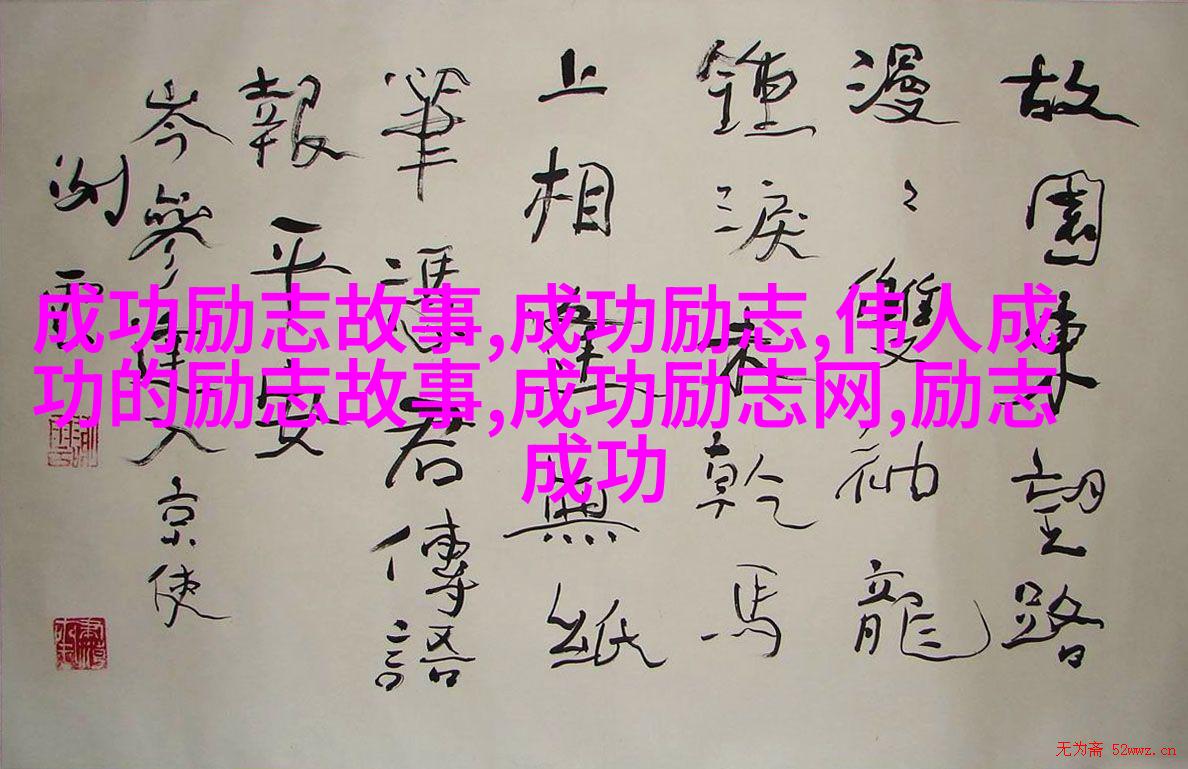 故園東望路
漫々雙袖龍
鍾淚未乾馬
上相逢無紙
筆憑君傳語
報平安
岑參逢入京使
成功励志故事,成功励志,伟人成
功的励志故事,成功励志网,励志
成功
无为斋 52wwz.cn